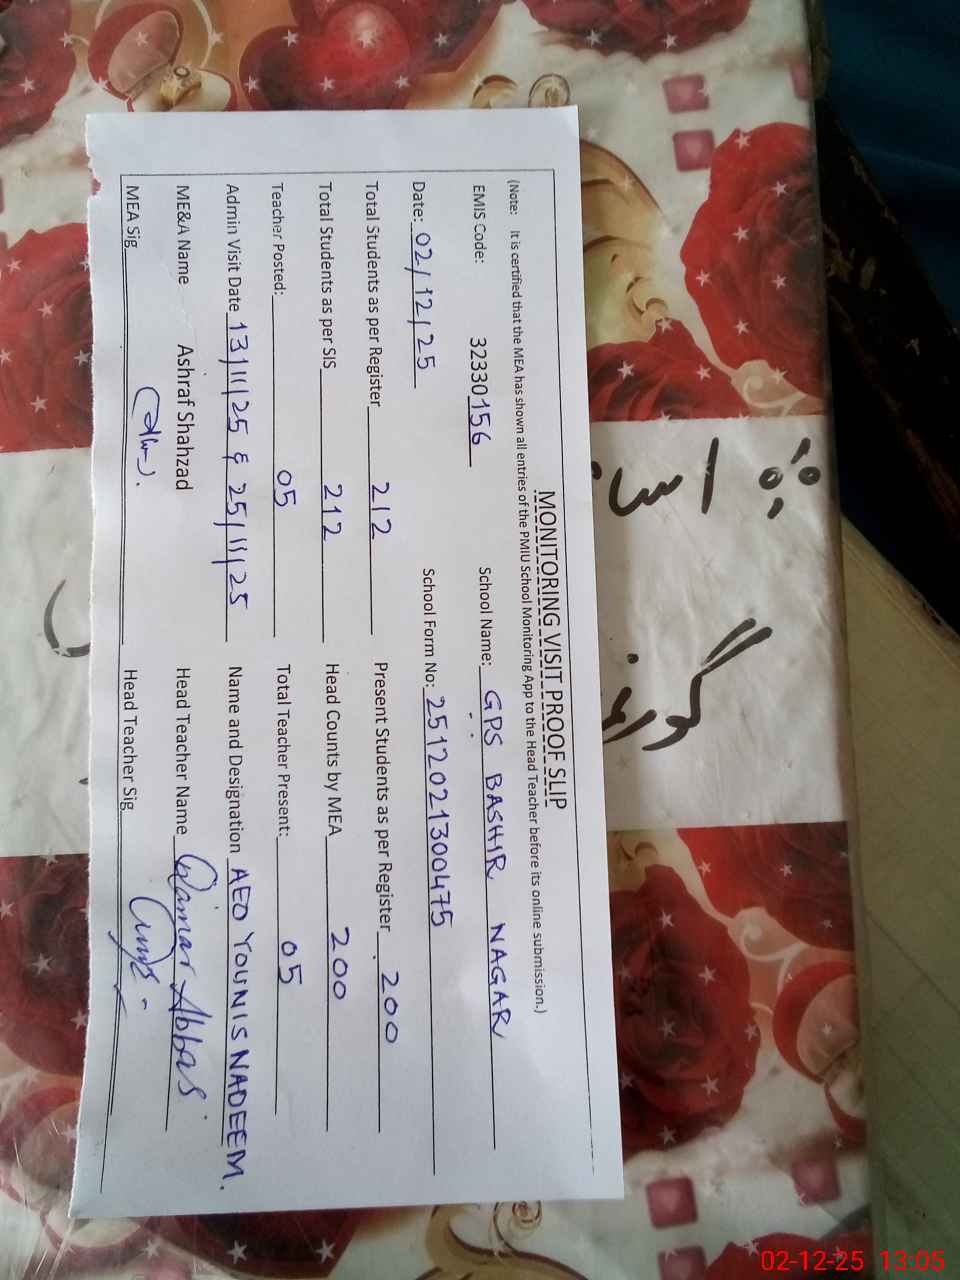 MONITORING VISIT PROOF SLIP
(Note: It is certified that the MEA has shown all entries of the PMIU School Monitoring App to the Head Teacher before its online submission.)
EMIS Code: 32330156 School Name: GPS BASHIR NAGAR
Date: 02/12/25 School Form No: 2512021300475
Total Students as per Register 212 Present Students as per Register 200
Total Students as per SIS 212 Head Counts by MEA 200
Teacher Posted: 05 Total Teacher Present: 05
Admin Visit Date 13/11/25 & 25/11/25 Name and Designation AEO YOUNIS NADEEM.
ME&A Name Ashraf Shahzad Head Teacher Name Qamar Abbas
MEA Sig Head Teacher Sig
02-12-25 13:05